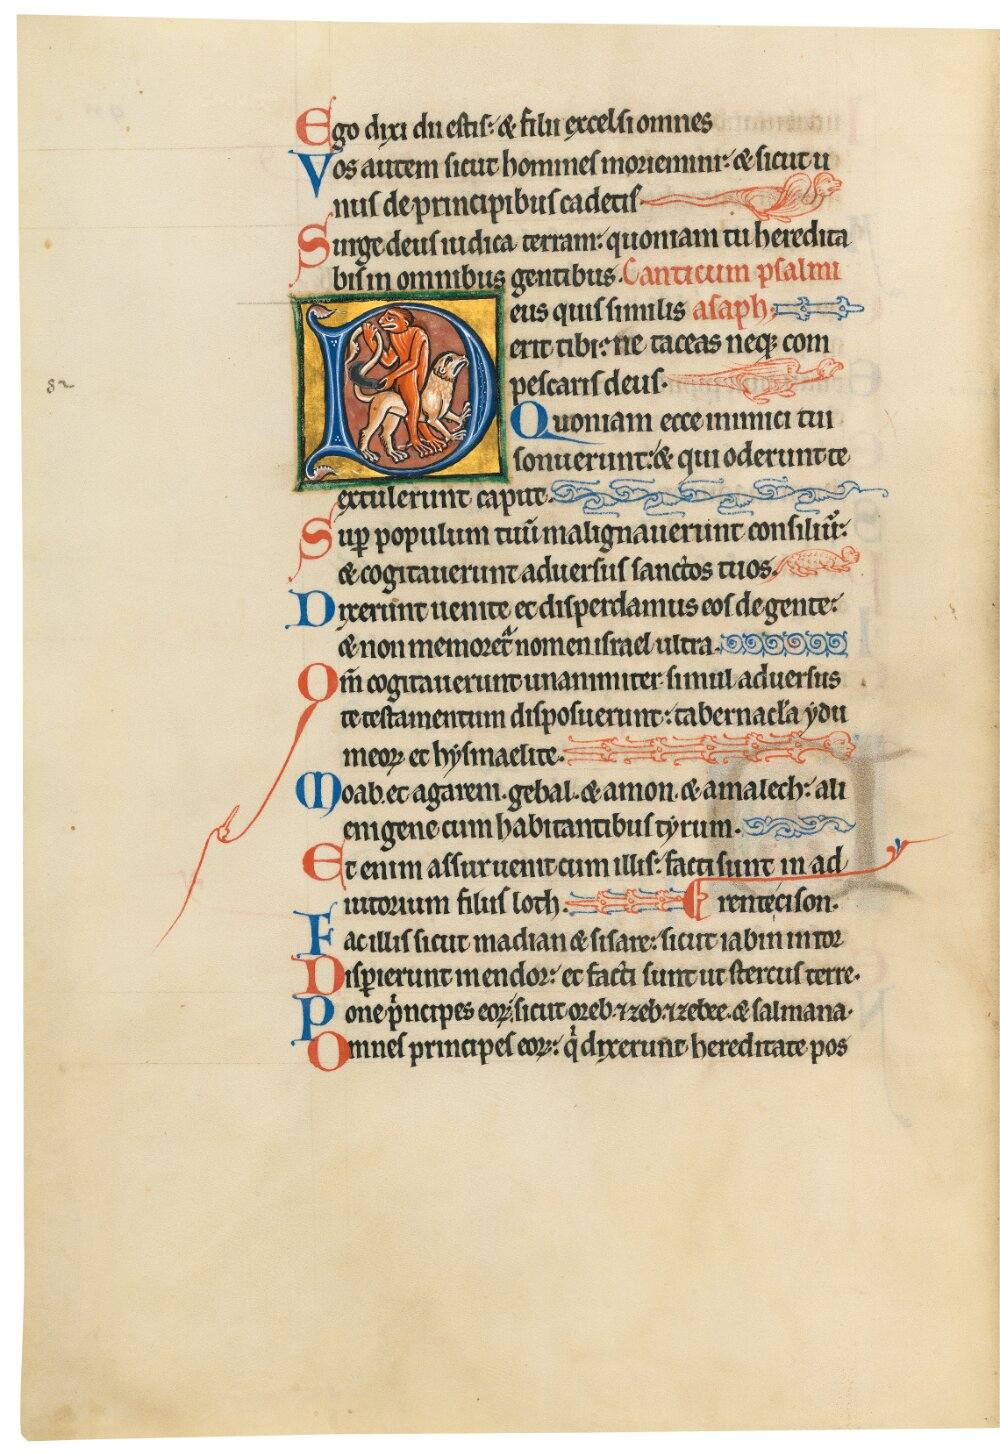 Ego dixi dii estis: & filii excelsi omnes
Vos autem sicut homines moriemini: & sicut u
nus de principibus cadetis.
Surge deus iudica terram: quoniam tu heredita
bis in omnibus gentibus. Canticum psalmi
Deus quis similis asaph.
erit tibi: ne taceas neq; com
pescaris deus.
Quoniam ecce inimici tui
sonuerunt: & qui oderunt te
extulerunt caput.
Sup populum tuū malignauerunt consiliū:
& cogitauerunt aduersus sanctos tuos.
Dixerunt uenite et disperdamus eos de gente:
& non memoret nomen israel ultra.
Om̄ cogitauerunt unanimiter simul aduersus
te testamentum disposuerunt: tabernacła ydu
meoꝝ et hysmaelite.
Moab. et agareni. gebal. & amon. & amalech: ali
enigene cum habitantibus tyrum.
Et enim assur uenit cum illis: facti sunt in ad
iutorium filiis loth. rente cison.
Fac illis sicut madian & sisare: sicut iabin in tor
Disperierunt in endor: et facti sunt ut stercus terre.
Pone pncipes eoꝝ. sicut oreb. ⁊ zeb. ⁊ zebee. & salmana.
Omnes principes eoꝝ: q dixerunt hereditate pos
82